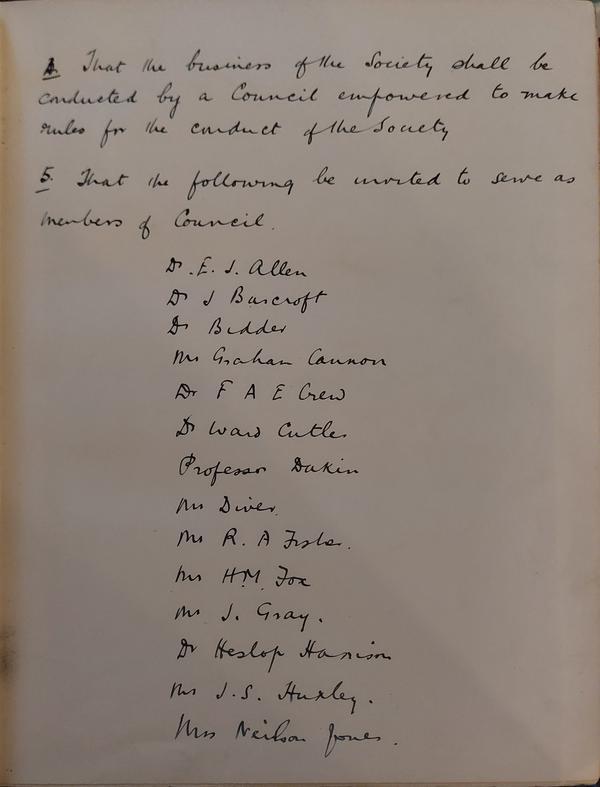 4. That the business of the Society shall be
conducted by a Council empowered to make
rules for the conduct of the Society
5. That the following be invited to serve as
members of Council.
Dr. E. J. Allen
Dr J Barcroft
Dr Bidder
Mr Graham Cannon
Dr F A E Crew
Dr Ward Cutler
Professor Dakin
Mr Diver.
Mr R. A Fisher.
Mr H.M. Fox
Mr J. Gray.
Dr Heslop Harrison
Mr J. S. Huxley.
Neilson Jones.